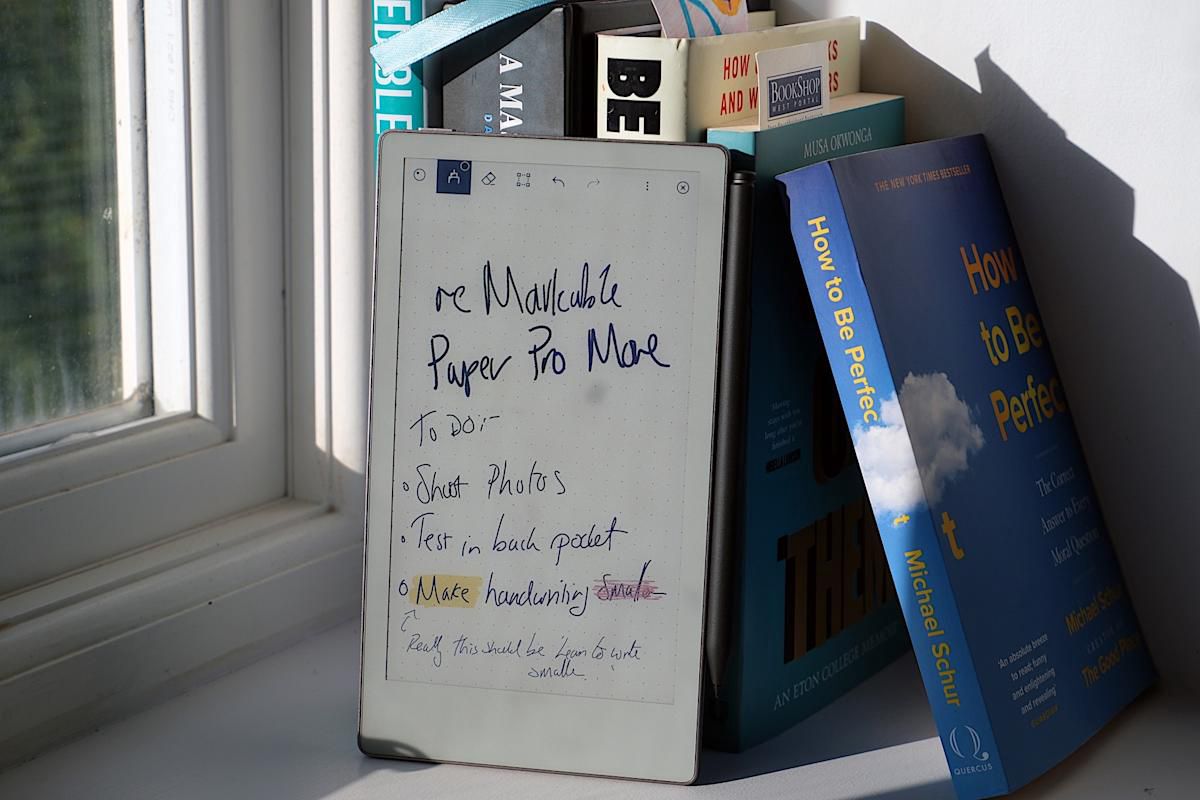 EDIBLE
A MA
DA
BE
HOW
KS
AND W
RS
BOOKSHOP
WEST PORTAL
MUSA OKWONGA
reMarkable
Paper Pro Move
To DO:-
Shoot Photos
Test in back pocket
Make handwriting smaller
Really this should be 'learn to write
smaller
THEM
AN ETON COLLEGE MEMOIR
How to Be Perfect
Michael Schur
QUERCUS
THE NEW YORK TIMES BESTSELLER
How
to Be
Perfec
t
The Correct
Answer to Every
Moral Question
Michael Schur
CREATOR OF
The Good Place
'An absolute breeze
to read; funny
and enlightening
and revealing'
GUARDIAN